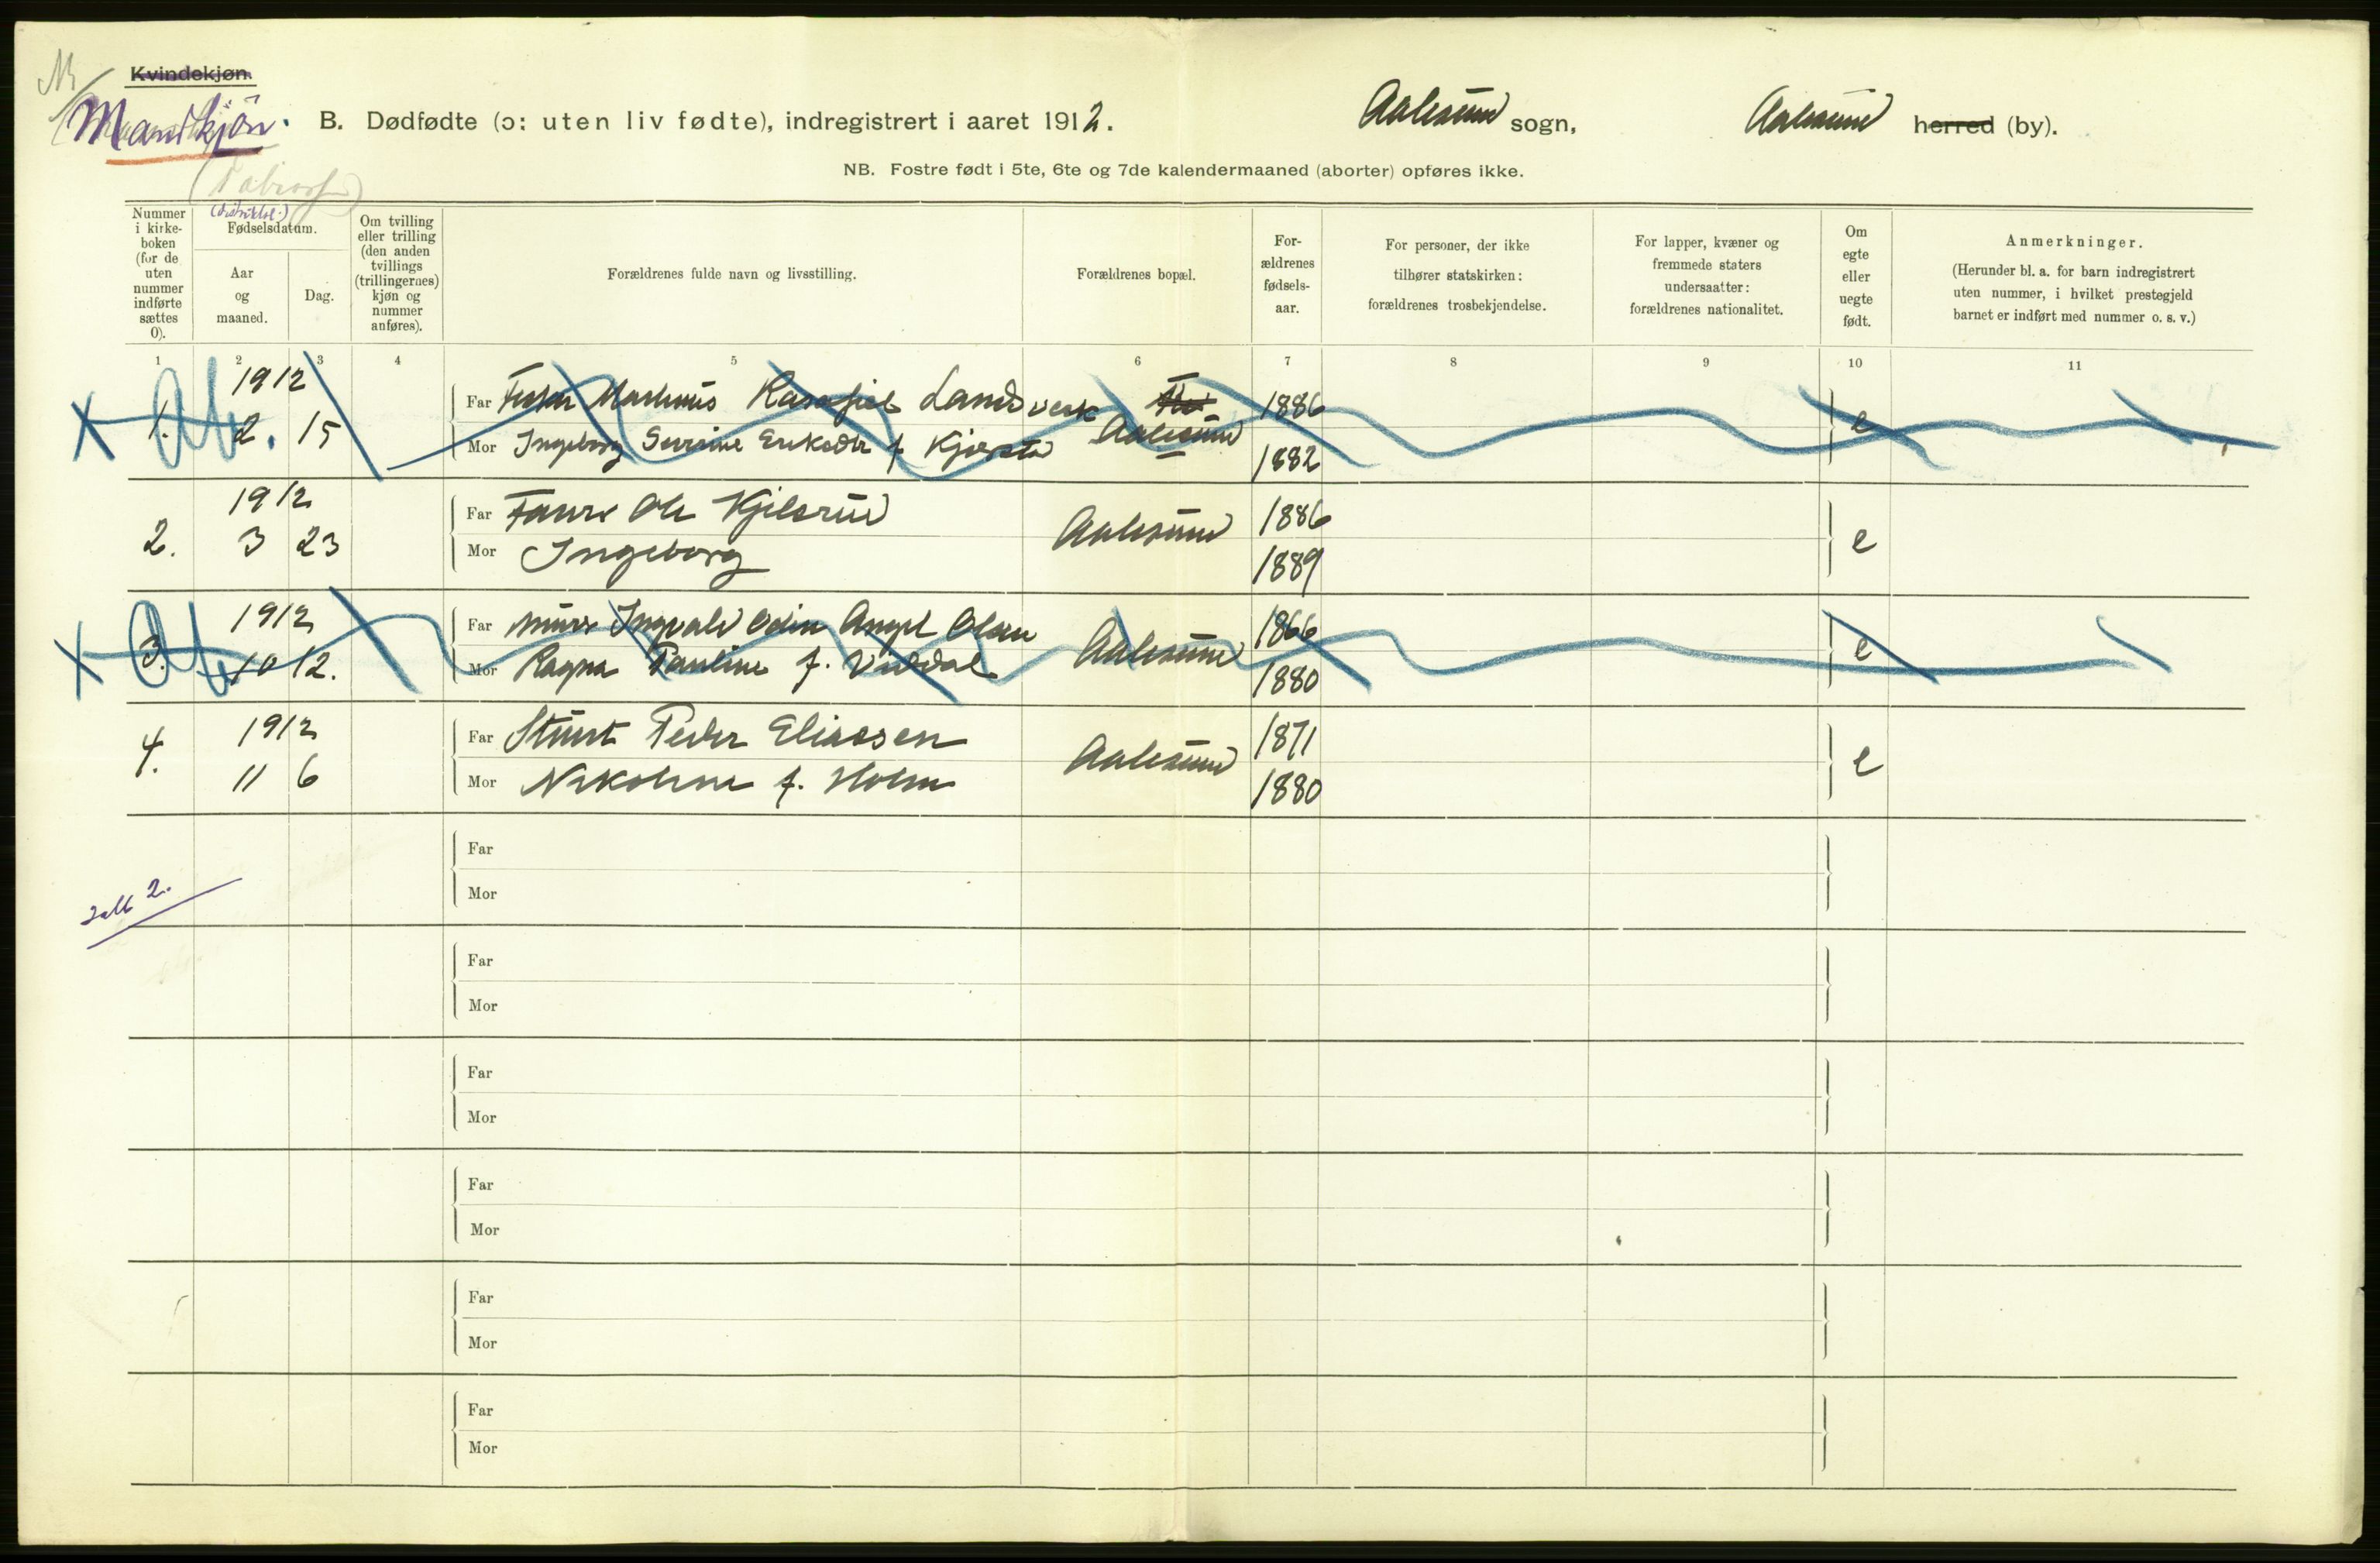 Kvindekjøn.
Mandkjøn.
B. Dødfødte (ɔ: uten liv fødte), indregistrert i aaret 1912.
Aalesund sogn,
Aalesund herred (by).
NB. Fostre født i 5te, 6te og 7de kalendermaaned (aborter) opføres ikke.
Nummer
i kirke-
boken
(for de
uten
nummer
indførte
sættes
0).
Fødselsdatum.
Aar
og
maaned.
Dag.
Om tvilling
eller trilling
(den anden
tvillings
(trillingernes)
kjøn og
nummer
anføres).
Forældrenes fulde navn og livsstilling.
Forældrenes bopæl.
For-
ældrenes
fødsels-
aar.
For personer, der ikke
tilhører statskirken:
forældrenes trosbekjendelse.
For lapper, kvæner og
fremmede staters
undersaatter:
forældrenes nationalitet.
Om
egte
eller
uegte
født.
Anmerkninger.
(Herunder bl. a. for barn indregistrert
uten nummer, i hvilket prestegjeld
barnet er indført med nummer o. s. v.)
1 2 3 4 5 6 7 8 9 10 11
1912
Far Martinus Landverk 1886
1. 2. 15 Aalesund e
Mor Ingeborg Severine Eriksdtr f. Kjerstad 1882
1912
Far Ole Kjelsrud 1886
2. 3 23 Aalesund e
Mor Ingeborg 1889
1912
Far Ingvald Odin Angel Olsen 1866
3. 10 12. Aalesund e
Mor Ragna Pauline f. 1880
1912
Far Peder Eliassen 1871
4. 11 6 Aalesund e
Mor Nikoline f. Holm 1880
Far
Mor
2.
Far
Mor
Far
Mor
Far
Mor
Far
Mor
Far
Mor